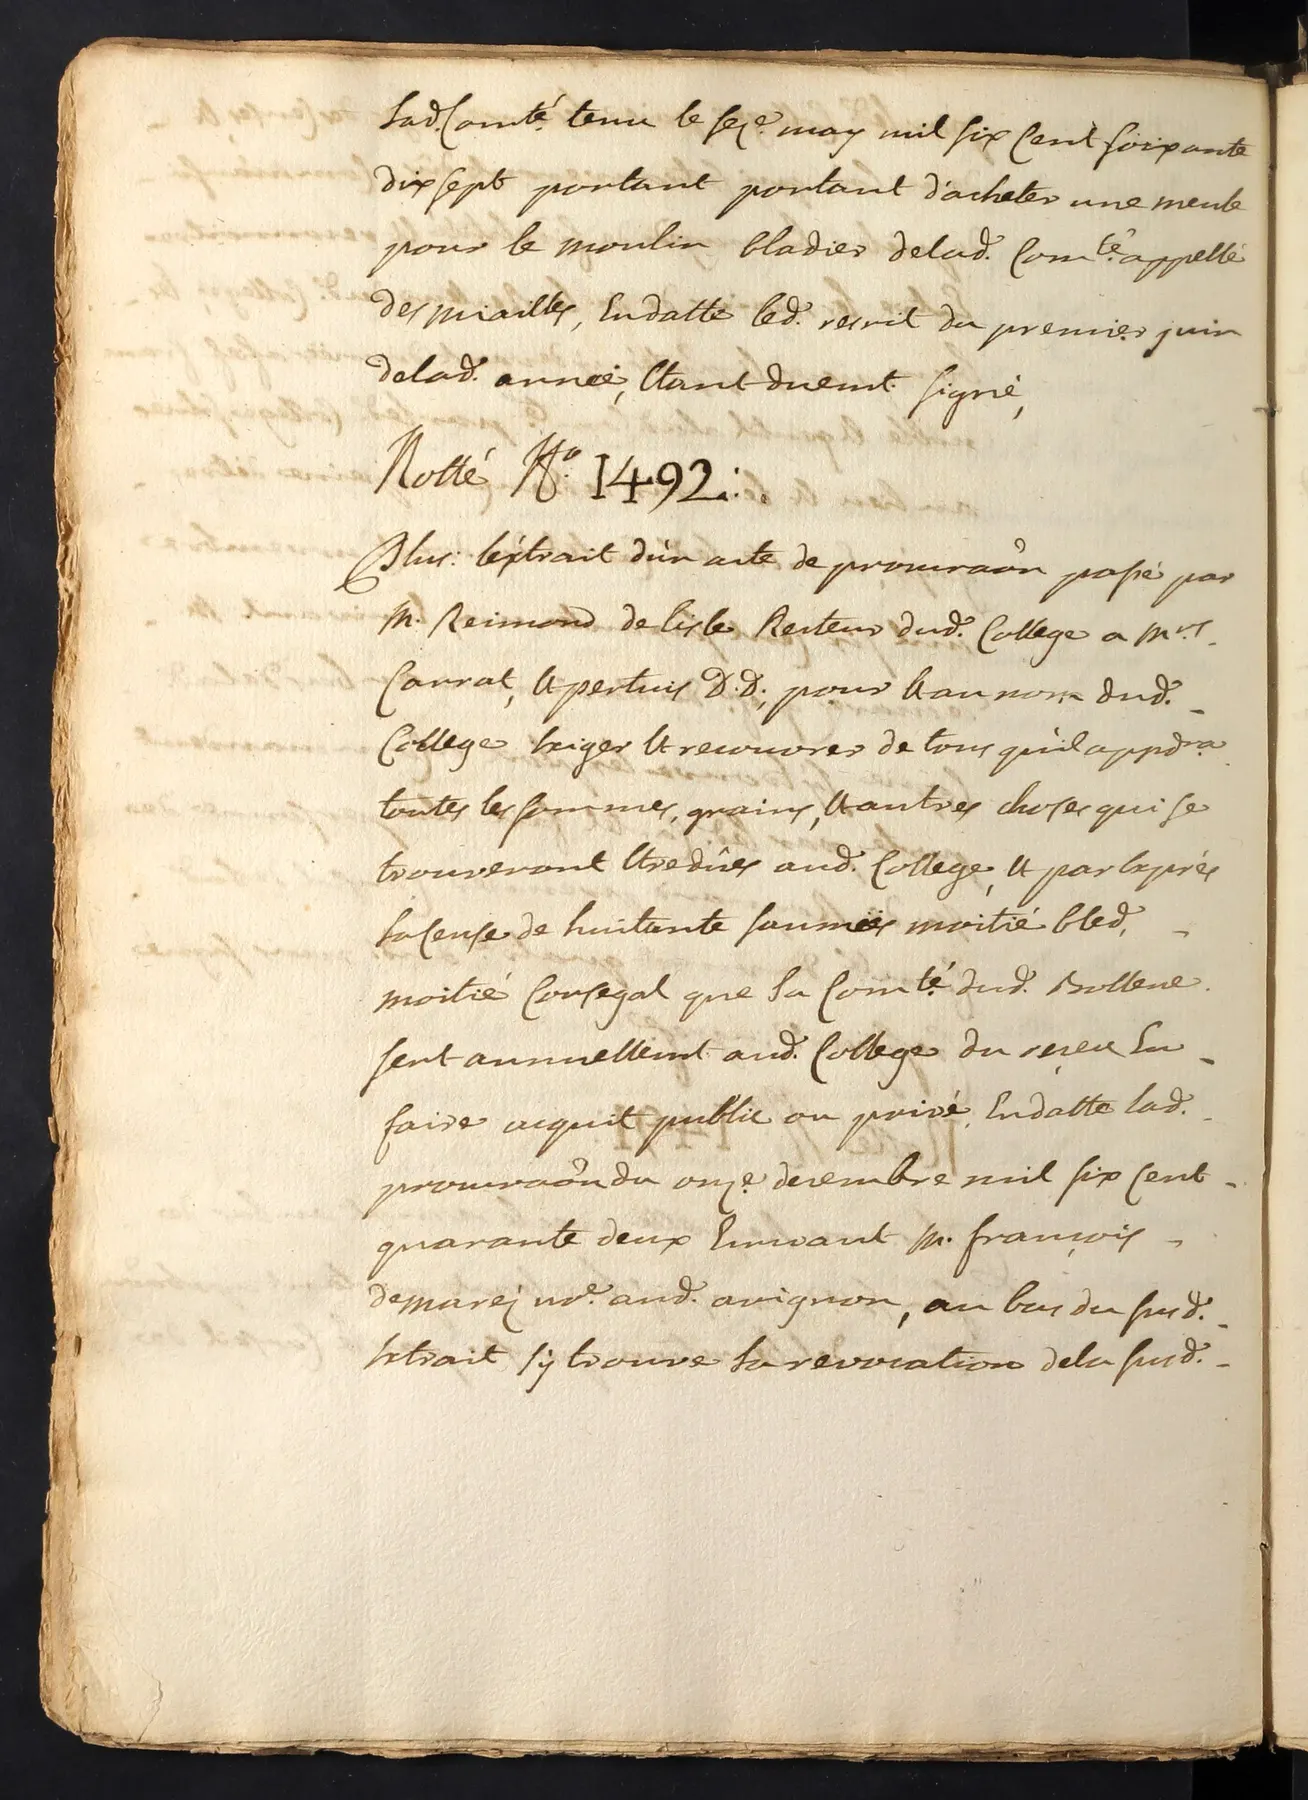 lad. Comté. tenu le seze. may mil six Cent soixante
dixsept portant portant d'acheter une meule
pour le moulin bladier delad. Comté. appellé
des miailles, Endatte led. rescrit du premier juin
delad. année, Etant duemt. signé,
Notté No. 1492.
Plus: l'extrait d'un acte de procuraôn passé par
M. Reimond de lisle Recteur dud. College a Mrs.
Carrat, et pertuis D.D., pour et au nom dud.
College Exiger et recouvrer de tous qu'il appdra
toutes les sommes, grains, et autres choses qui se
trouveront Etre dûes aud. College, et par Exprés
la cense de huitante saumées moitié bled,
moitié Consegal que la Comté. dud. Bollene
sert annuellemt. aud. College du receu En
faire acquit public ou privé, Endatte lad.
procuraôn du onze. decembre mil six Cent
quarante deux Ecrivant M. françois
demarez nre. aud. avignon, au bas du susd.
Extrait s'y trouve la revocation dela susd.